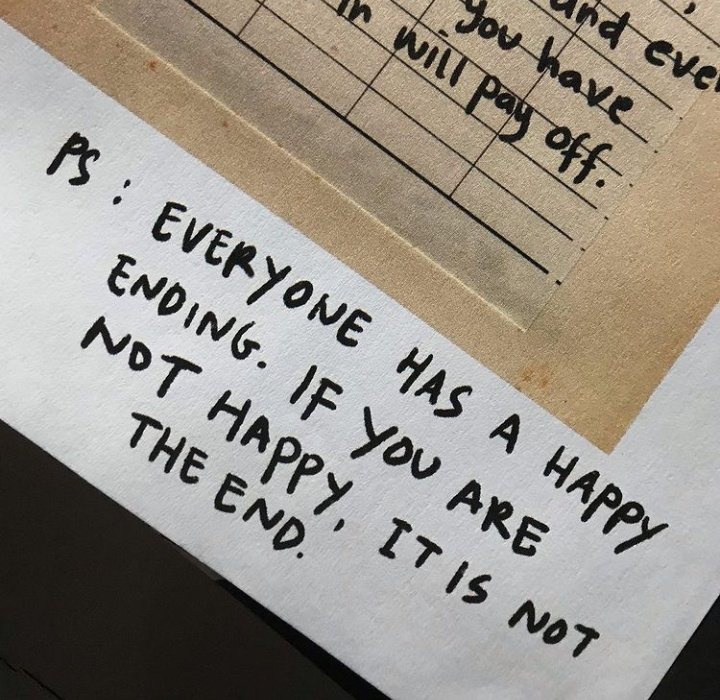 and
you have
in will pay off.
PS : EVERYONE HAS A HAPPY
ENDING. IF YOU ARE
NOT HAPPY, IT IS NOT
THE END.